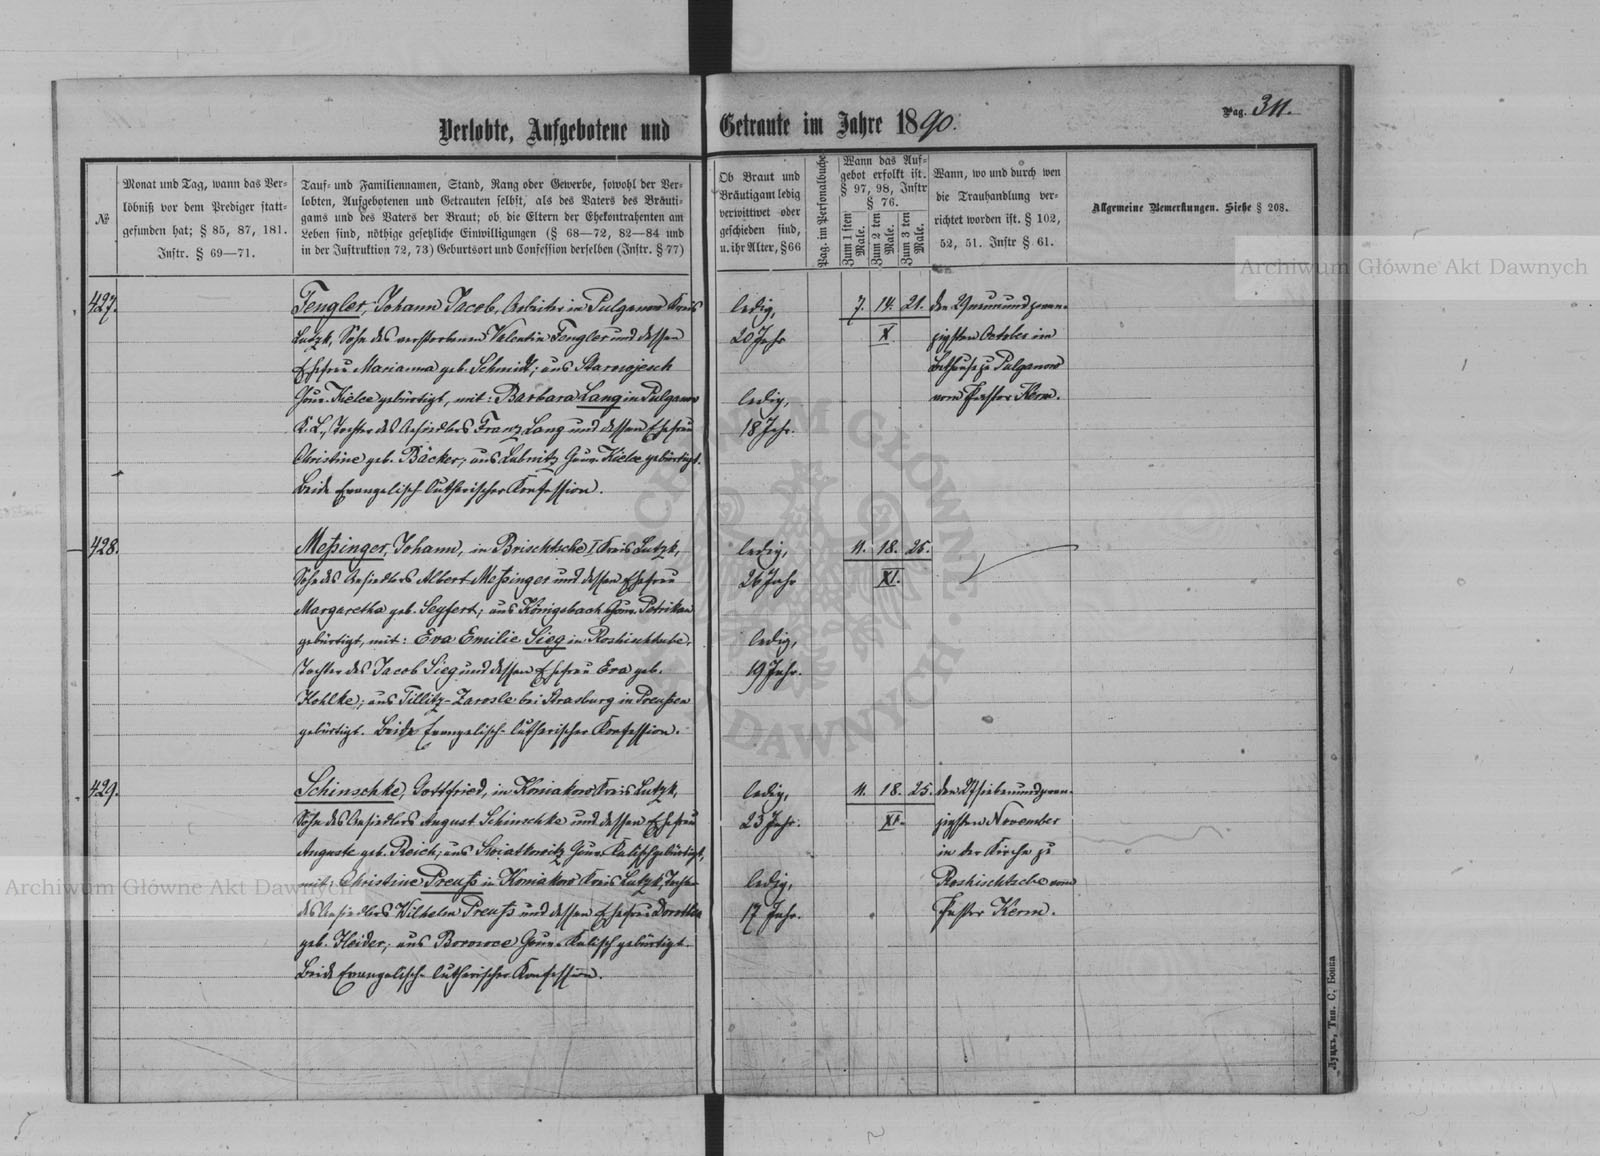 Verlobte, Aufgebotene und Getraute im Jahre 1890.
Pag. 311.
№
Monat und Tag, wann das Ver-
löbniß vor dem Prediger statt-
gefunden hat; § 85, 87, 181.
Instr. § 69—71.
Tauf- und Familiennamen, Stand, Rang oder Gewerbe, sowohl der Ver-
lobten, Aufgebotenen und Getrauten selbst, als des Vaters des Bräuti-
gams und des Vaters der Braut; ob die Eltern der Ehekontrahenten am
Leben sind, nöthige gesetzliche Einwilligungen (§ 68—72, 82—84 und
in der Instruktion 72, 73) Geburtsort und Confession derselben (Instr. § 77)
Ob Braut und
Bräutigam ledig
verwittwet oder
geschieden sind,
u. ihr Alter, § 66
Pag. im Personalbuche
Wann das Auf-
gebot erfolgt ist.
§ 97, 98, Instr
§ 76.
Zum 1 sten
Male.
Zum 2 ten
Male.
Zum 3 ten
Male.
Wann, wo und durch wen
die Trauhandlung ver-
richtet worden ist. § 102,
52, 51. Instr § 61.
Allgemeine Bemerkungen. Siehe § 208.
427.
Fengler, Johann Jacob, Arbeiter in Pulganow Kreis
Lutzk, Sohn des verstorbenen Valentin Fengler und dessen
Ehefrau Marianna geb. Schmidt; aus
Gouv. Kielce gebürtigt, mit: Barbara Lang in Pulganow
K. L., Tochter des Ansiedlers Franz Lang und dessen Ehefrau
Christine geb. Bäcker; aus Lubnitz Gouv. Kielce gebürtigt.
Beide Evangelisch-lutherischer Konfession.
ledig,
20 Jahr
ledig,
18 Jahr.
7. 14. 21.
X.
den 29 neunundzwan-
zigsten October im
Bethause zu Pulganow
vom Pastor Kerm.
428.
Meßinger, Johann, in Brischtsche I Kreis Lutzk,
Sohn des Ansiedlers Albert Meßinger und dessen Ehefrau
Margaretha geb. Seyfert; aus Königsbach Gouv. Petrikau
gebürtigt, mit: Eva Emilie Sieg in Roshischtsche,
Tochter des Jacob Sieg und dessen Ehefrau Eva geb.
Kohlke; aus Tillitz-Zarosle bei Strasburg in Preußen
gebürtigt. Beide Evangelisch-lutherischer Konfession.
ledig,
26 Jahr
ledig,
19 Jahr.
11. 18. 25.
XI.
429.
Schinschke, Gottfried, in Koniakow, Kreis Lutzk,
Sohn des Ansiedlers August Schinschke und dessen Ehefrau
Auguste geb. Reich; aus Swiatkowitz Gouv. Kalisch gebürtigt,
mit Christine Preuß in Koniakow Kreis Lutzk, Tochter
des Ansiedlers Wilhelm Preuß und dessen Ehefrau Dorothea
geb. Heider; aus Borowce Gouv. Kalisch gebürtigt.
Beide Evangelisch-lutherischer Konfession.
ledig,
23 Jahr.
ledig,
17 Jahr.
11. 18. 25.
XI.
den 27 siebenundzwan-
zigsten November
in der Kirche zu
Roshischtsche vom
Pastor Kerm.
Луцкъ, Тип. С. Бонка
Archiwum Główne Akt Dawnych
Archiwum Główne Akt Dawnych